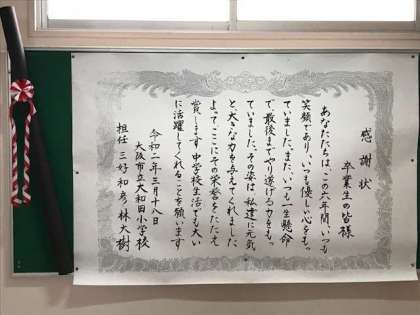 感謝状
卒業生の皆様
あなたたちは、この六年間、いつも
笑顔であり、いつも優しい心をもっ
ていました。また、いつも一生懸命
で、最後までやり遂げる力をもっ
ていました。その姿は、私達に元気
と、大きな力を与えてくれました。
よって、ここにその栄誉をたたえ
賞します。中学校生活でも大い
に活躍してくれることを願います
令和二年三月十八日
大阪市立大和田小学校
担任 三好和彦・林大樹